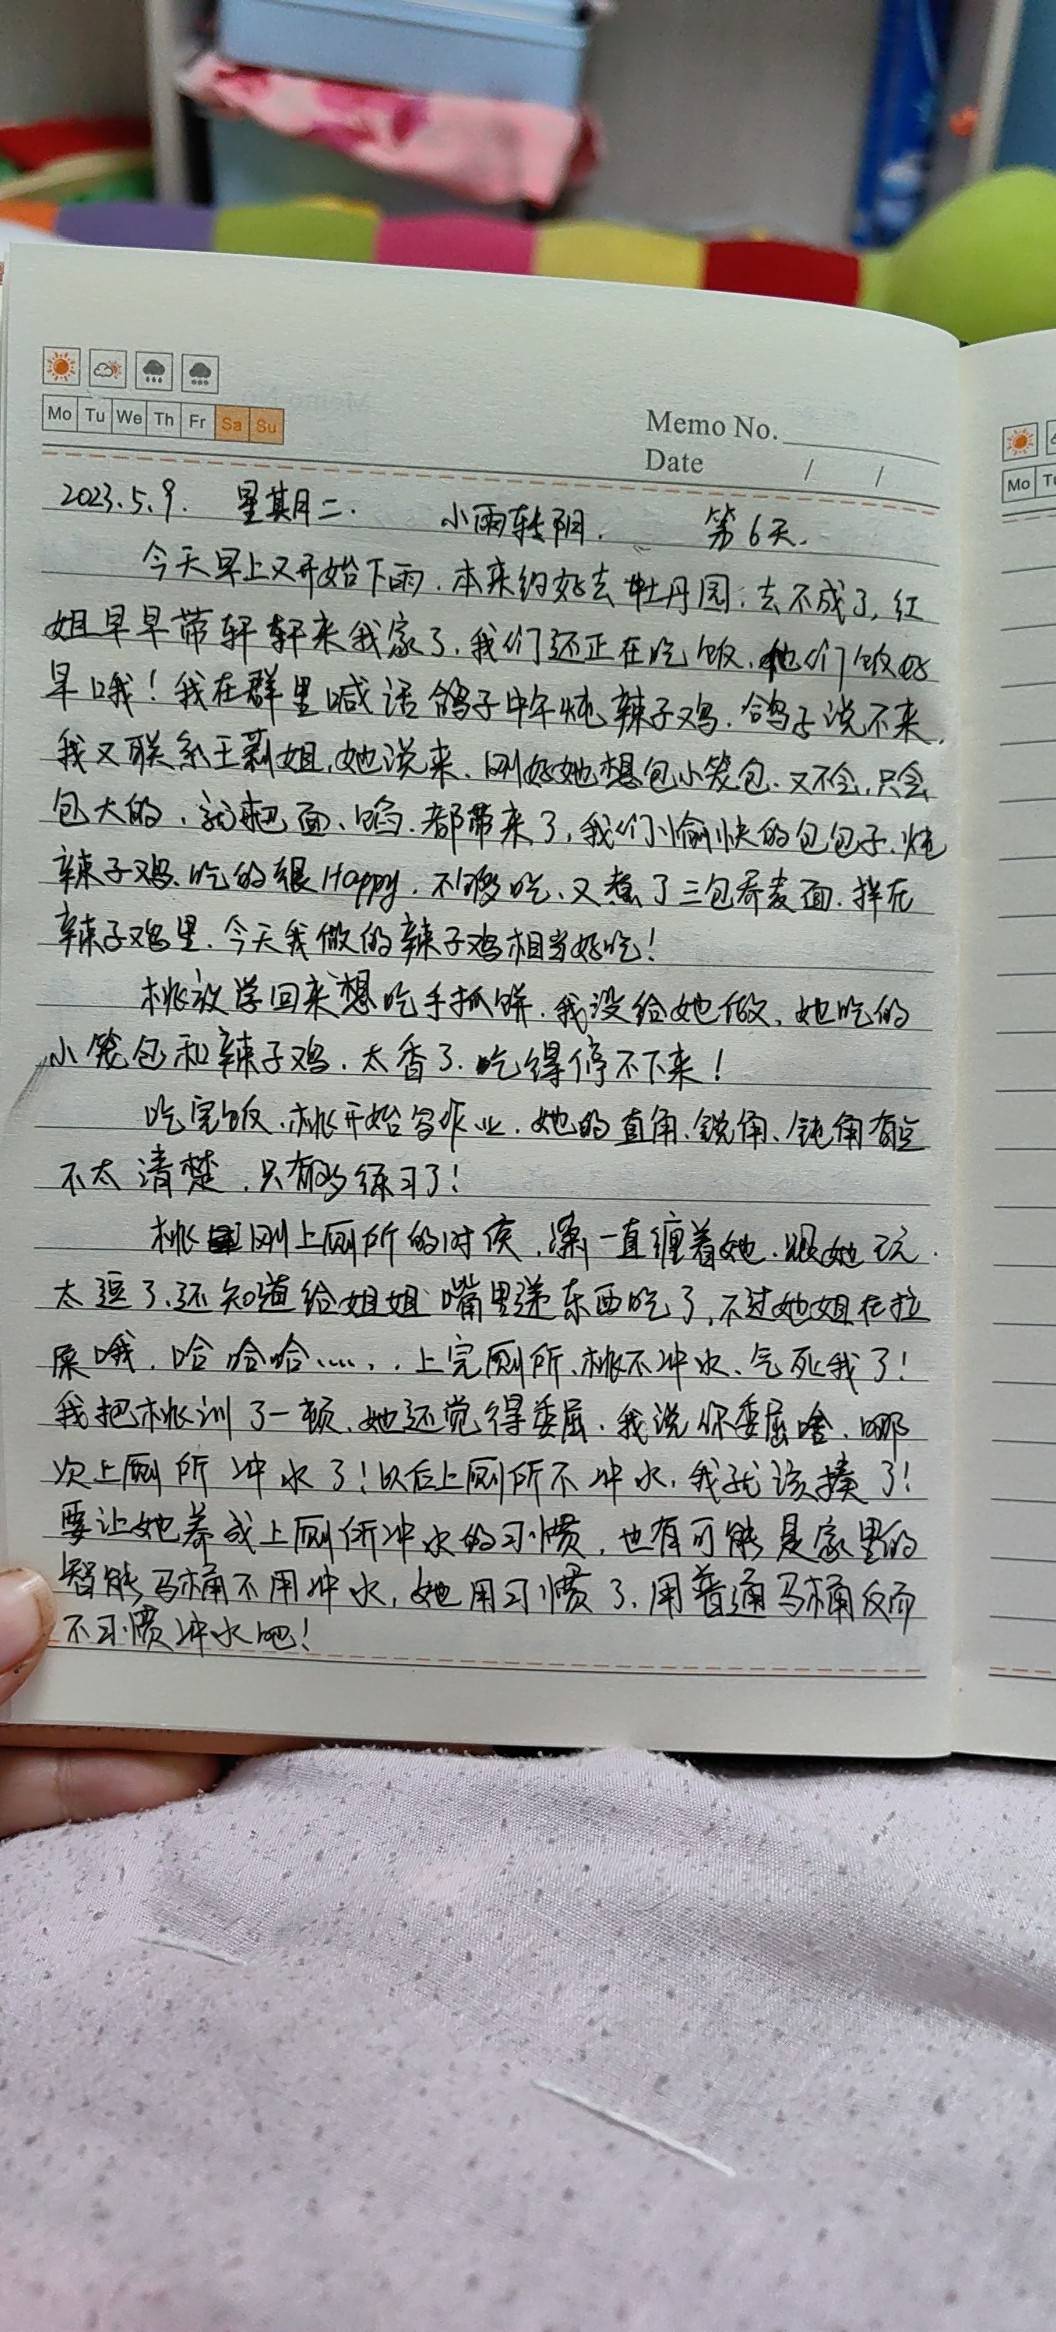 Mo Tu We Th Fr Sa Su
Memo No.
Date / /
Mo Tu
2023.5.9. 星期二. 小雨转阴. 第6天.
今天早上又开始下雨.本来约好去牡丹园;去不成了,红
姐早早带轩轩来我家了.我们还正在吃饭.他们饭好
早哦!我在群里喊话鸽子中午炖辣子鸡.鸽子说不来,
我又联系王莉姐,她说来.刚好她想包小笼包.又不会,只会
包大的,就把面、馅.都带来了,我们愉快的包包子.炖
辣子鸡、吃的很Happy.不够吃、又煮了三包荞麦面.拌在
辣子鸡里.今天我做的辣子鸡相当好吃!
桃放学回来想吃手抓饼.我没给她做、她吃的
小笼包和辣子鸡.太香了.吃得停不下来!
吃完饭、桃开始写作业.她的直角、锐角、钝角有点
不太清楚,只有多练习了!
桃刚上厕所的时侯,一直缠着她.跟她玩.
太逗了、还知道给姐姐嘴里递东西吃了,不过她姐在拉
屎哦.哈哈哈......上完厕所、桃不冲水、气死我了!
我把桃训了一顿、她还觉得委屈.我说你委屈啥.哪
次上厕所冲水了!以后上厕所不冲水,我就该揍了!
要让她养成上厕所冲水的习惯,也有可能是家里的
智能马桶不用冲水,她用习惯了.用普通马桶反而
不习惯冲水吧!